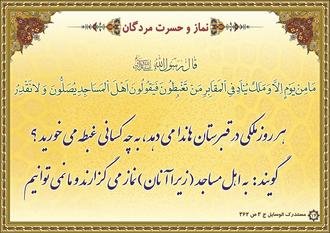 نماز و حسرت مردگان
قال رسول الله ﷺ
مَا مِنْ يَوْمٍ إِلَّا وَ مَلَكٌ يُنَادِي فِي الْمَقَابِرِ مَنْ تَغْبِطُونَ فَيَقُولُونَ أَهْلَ الْمَسَاجِدِ يُصَلُّونَ وَ لَا نَقْدِرُ
هر روز ملکی در قبرستان ها ندا می دهد، به چه کسانی غبطه می خورید؟
گویند: به اهل مساجد (زیرا آنان) نماز می گزارند و ما نمی توانیم
مستدرک الوسایل ج ۳ ص ۳۶۲